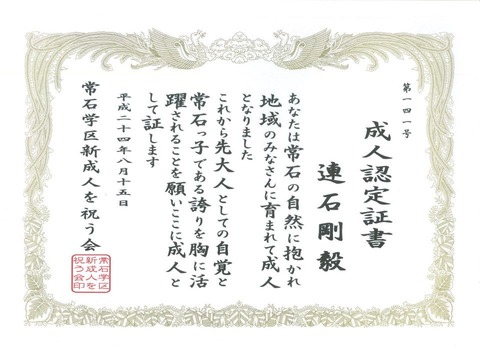 第一四一号
成人認定証書
連石剛毅
あなたは常石の自然に抱かれ
地域のみなさんに育まれて成人
となりました
これから先大人としての自覚と
常石っ子である誇りを胸に活
躍されることを願いここに成人と
して証します
平成二十四年八月十五日
常石学区新成人を祝う会
常石学区
新成人を
祝う会印